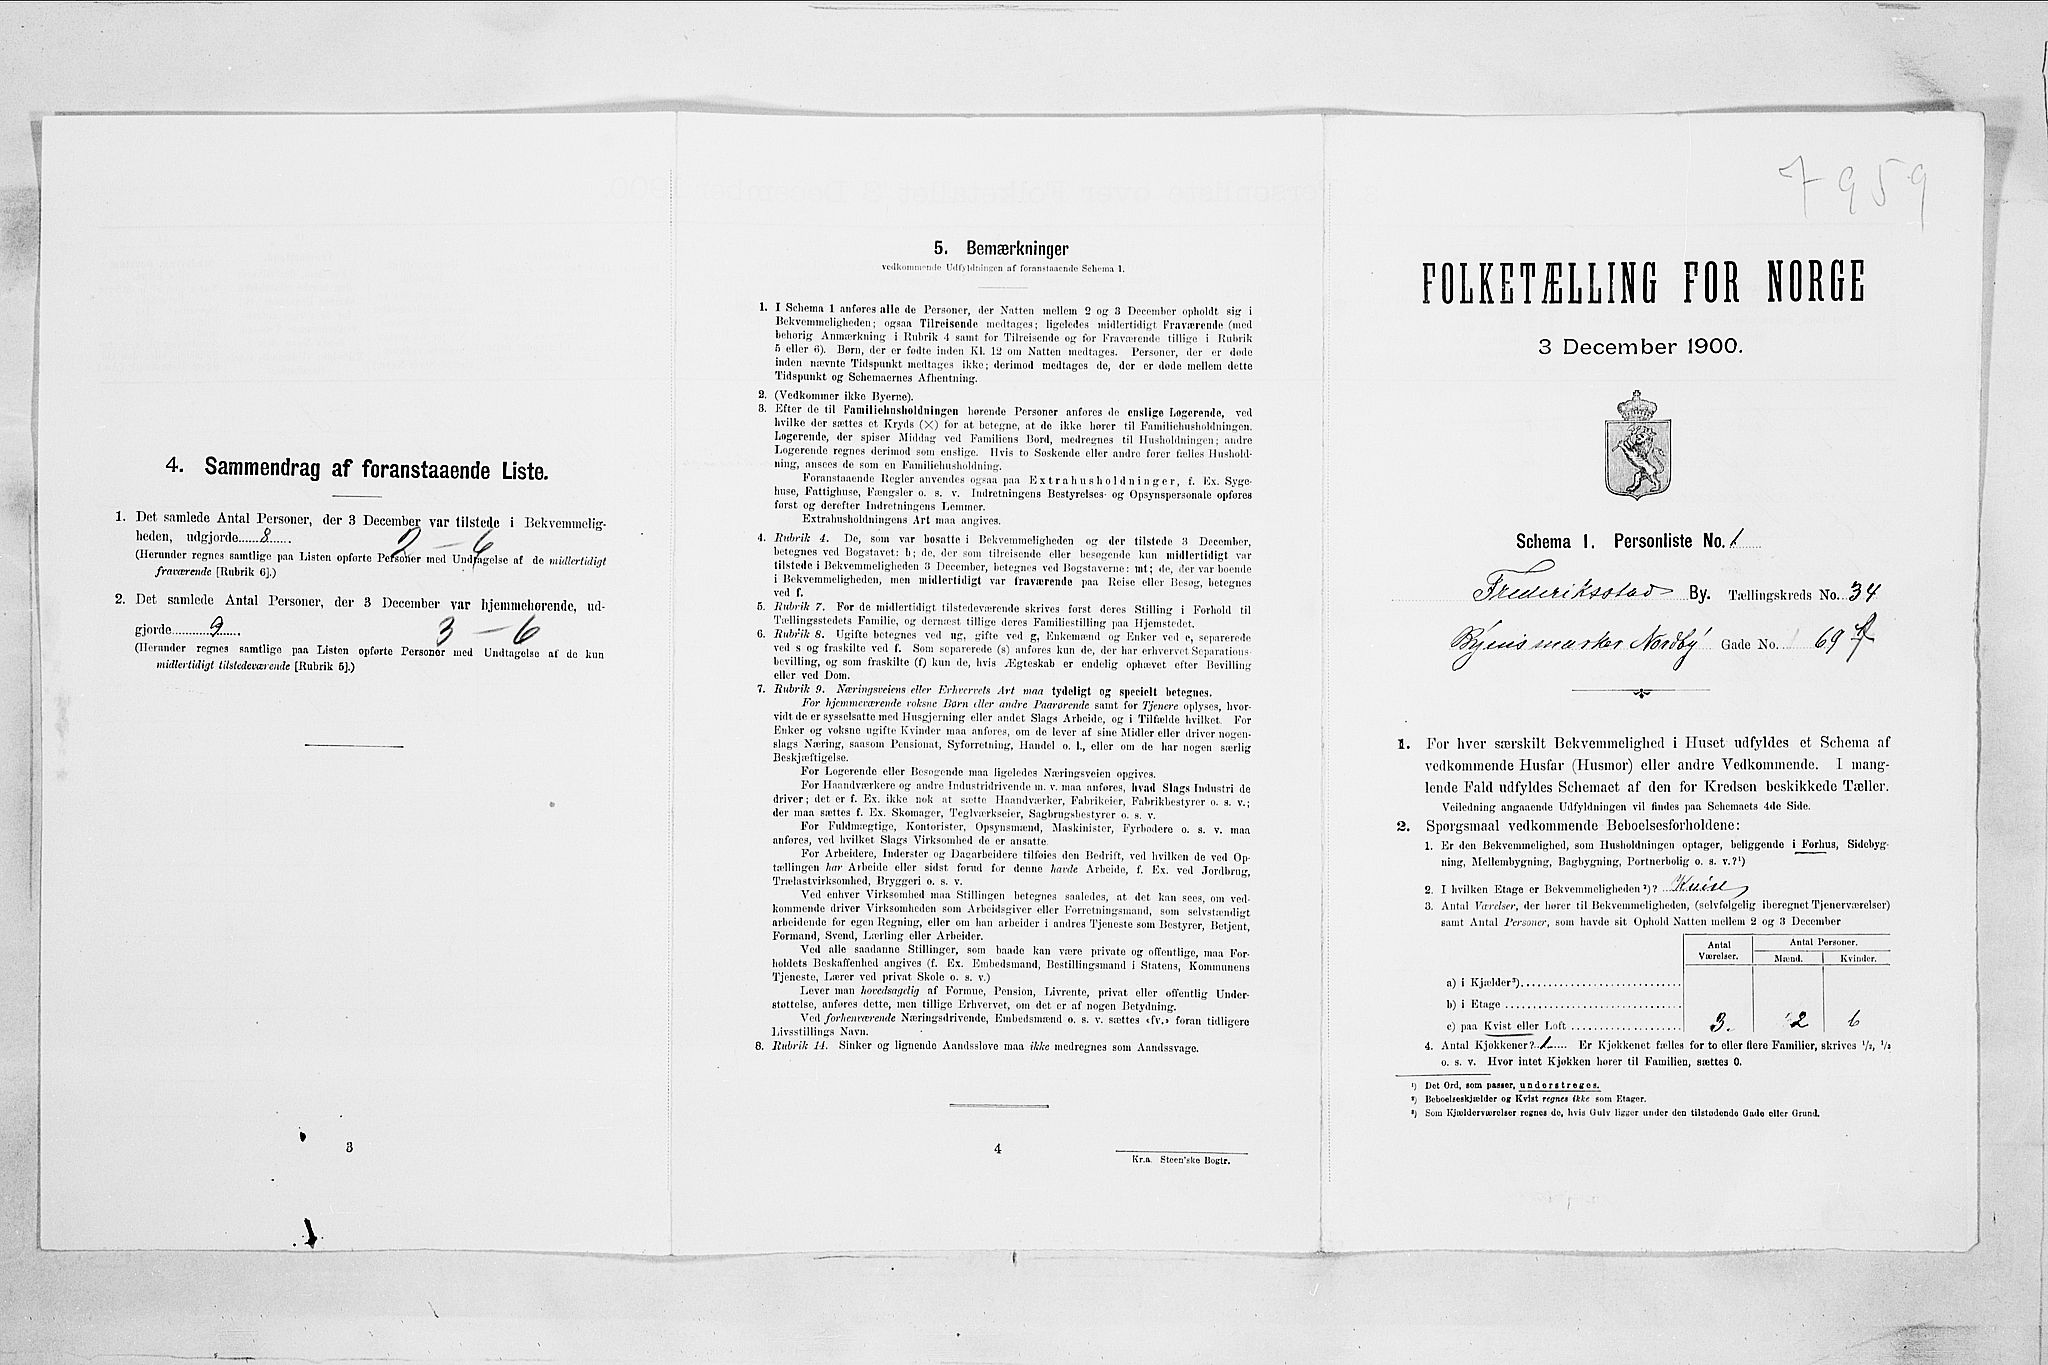 4. Sammendrag af foranstaaende Liste.
1. Det samlede Antal Personer, der 3 December var tilstede i Bekvemmelig-
heden, udgjorde 8 2 – 6
(Herunder regnes samtlige paa Listen opførte Personer med Undtagelse af de midlertidigt
fraværende [Rubrik 6].)
2. Det samlede Antal Personer, der 3 December var hjemmehørende, ud-
gjorde 9 3 – 6
(Herunder regnes samtlige paa Listen opførte Personer med Undtagelse af de kun
midlertidigt tilstedeværende [Rubrik 5].)
3
5. Bemærkninger
vedkommende Udfyldningen af foranstaaende Schema 1.
1. I Schema 1 anføres alle de Personer, der Natten mellem 2 og 3 December opholdt sig i
Bekvemmeligheden; ogsaa Tilreisende medtages; ligeledes midlertidigt Fraværende (med
behørig Anmærkning i Rubrik 4 samt for Tilreisende og for Fraværende tillige i Rubrik
5 eller 6). Børn, der er fødte inden Kl. 12 om Natten medtages. Personer, der er døde
inden nævnte Tidspunkt medtages ikke; derimod medtages de, der er døde mellem dette
Tidspunkt og Schemaernes Afhentning.
2. (Vedkommer ikke Byerne).
3. Efter de til Familiehusholdningen hørende Personer anføres de enslige Logerende, ved
hvilke der sættes et Kryds (×) for at betegne, at de ikke hører til Familiehusholdningen.
Logerende, der spiser Middag ved Familiens Bord, medregnes til Husholdningen; andre
Logerende regnes derimod som enslige. Hvis to Søskende eller andre fører fælles Hushold-
ning, ansees de som en Familiehusholdning.
Foranstaaende Regler anvendes ogsaa paa Extrahusholdninger, f. Ex. Syge-
huse, Fattighuse, Fængsler o. s. v. Indretningens Bestyrelses- og Opsynspersonale opføres
først og derefter Indretningens Lemmer.
Extrahusholdningens Art maa angives.
4. Rubrik 4. De, som var bosatte i Bekvemmeligheden og der tilstede 3 December,
betegnes ved Bogstavet: b; de, der som tilreisende eller besøgende kun midlertidigt var
tilstede i Bekvemmeligheden 3 December, betegnes ved Bogstaverne: mt; de, der var boende
i Bekvemmeligheden, men midlertidigt var fraværende paa Reise eller Besøg, betegnes
ved f.
5. Rubrik 7. For de midlertidigt tilstedeværende skrives først deres Stilling i Forhold til
Tællingsstedets Familie, og dernæst tillige deres Familiestilling paa Hjemstedet.
6. Rubrik 8. Ugifte betegnes ved ug, gifte ved g, Enkemænd og Enker ved e, separerede
ved s og fraskilte ved f. Som separerede (s) anføres kun de, der har erhvervet Separations-
bevilling, og som fraskilte (f) kun de, hvis Ægteskab er endelig ophævet efter Bevilling
eller ved Dom.
7. Rubrik 9. Næringsveiens eller Erhvervets Art maa tydeligt og specielt betegnes.
For hjemmeværende voksne Børn eller andre Paarørende samt for Tjenere oplyses, hvor-
vidt de er sysselsatte med Husgjerning eller andet Slags Arbeide, og i Tilfælde hvilket. For
Enker og voksne ugifte Kvinder maa anføres, om de lever af sine Midler eller driver nogen-
slags Næring, saasom Pensionat, Syforretning, Handel o. l., eller om de har nogen særlig
Beskjæftigelse.
For Logerende eller Besøgende maa ligeledes Næringsveien opgives.
For Haandværkere og andre Industridrivende m. v. maa anføres, hvad Slags Industri de
driver; det er f. Ex. ikke nok at sætte Haandværker, Fabrikeier, Fabrikbestyrer o. s. v.;
der maa sættes f. Ex. Skomager, Teglværkseier, Sagbrugsbestyrer o. s. v.
For Fuldmægtige, Kontorister, Opsynsmænd, Maskinister, Fyrbødere o. s. v. maa
anføres, ved hvilket Slags Virksomhed de er ansatte.
For Arbeidere, Inderster og Dagarbeidere tilføies den Bedrift, ved hvilken de ved Op-
tællingen har Arbeide eller sidst forud for denne havde Arbeide, f. Ex. ved Jordbrug,
Trælastvirksomhed, Bryggeri o. s. v.
Ved enhver Virksomhed maa Stillingen betegnes saaledes, at det kan sees, om ved-
kommende driver Virksomheden som Arbeidsgiver eller Forretningsmand, som selvstændigt
arbeidende for egen Regning, eller om han arbeider i andres Tjeneste som Bestyrer, Betjent,
Formand, Svend, Lærling eller Arbeider.
Ved alle saadanne Stillinger, som baade kan være private og offentlige, maa For-
holdets Beskaffenhed angives (f. Ex. Embedsmand, Bestillingsmand i Statens, Kommunens
Tjeneste, Lærer ved privat Skole o. s. v.)
Lever man hovedsagelig af Formue, Pension, Livrente, privat eller offentlig Under-
støttelse, anføres dette, men tillige Erhvervet, om det er af nogen Betydning.
Ved forhenværende Næringsdrivende, Embedsmænd o. s. v. sættes «fv.» foran tidligere
Livsstillings Navn.
8. Rubrik 14. Sinker og lignende Aandssløve maa ikke medregnes som Aandssvage.
4
Kr.a. Steen'ske Bogtr.
7959
FOLKETÆLLING FOR NORGE
3 December 1900.
Schema 1. Personliste No. 1
Frederiksstad By. Tællingskreds No. 34
Byens marker Nordby Gade No. 69
1. For hver særskilt Bekvemmelighed i Huset udfyldes et Schema af
vedkommende Husfar (Husmor) eller andre Vedkommende. I mang-
lende Fald udfyldes Schemaet af den for Kredsen beskikkede Tæller.
Veiledning angaaende Udfyldningen vil findes paa Schemaets 4de Side.
2. Spørgsmaal vedkommende Beboelsesforholdene:
1. Er den Bekvemmelighed, som Husholdningen optager, beliggende i Forhus, Sidebyg-
ning, Mellembygning, Bagbygning, Portnerbolig o. s. v.?¹)
2. I hvilken Etage er Bekvemmeligheden²)? Kvist
3. Antal Værelser, der hører til Bekvemmeligheden, (selvfølgelig iberegnet Tjenerværelser)
samt Antal Personer, som havde sit Ophold Natten mellem 2 og 3 December
Antal Værelser. Antal Personer.
Mænd. Kvinder.
a) i Kjælder³)
b) i Etage
c) paa Kvist eller Loft 3. 2 6
4. Antal Kjøkkener? 1 Er Kjøkkenet fælles for to eller flere Familier, skrives ½, ⅓
o. s. v. Hvor intet Kjøkken hører til Familien, sættes 0.
¹) Det Ord, som passer, understreges.
²) Beboelseskjælder og Kvist regnes ikke som Etager.
³) Som Kjælderværelser regnes de, hvis Gulv ligger under den tilstødende Gade eller Grund.